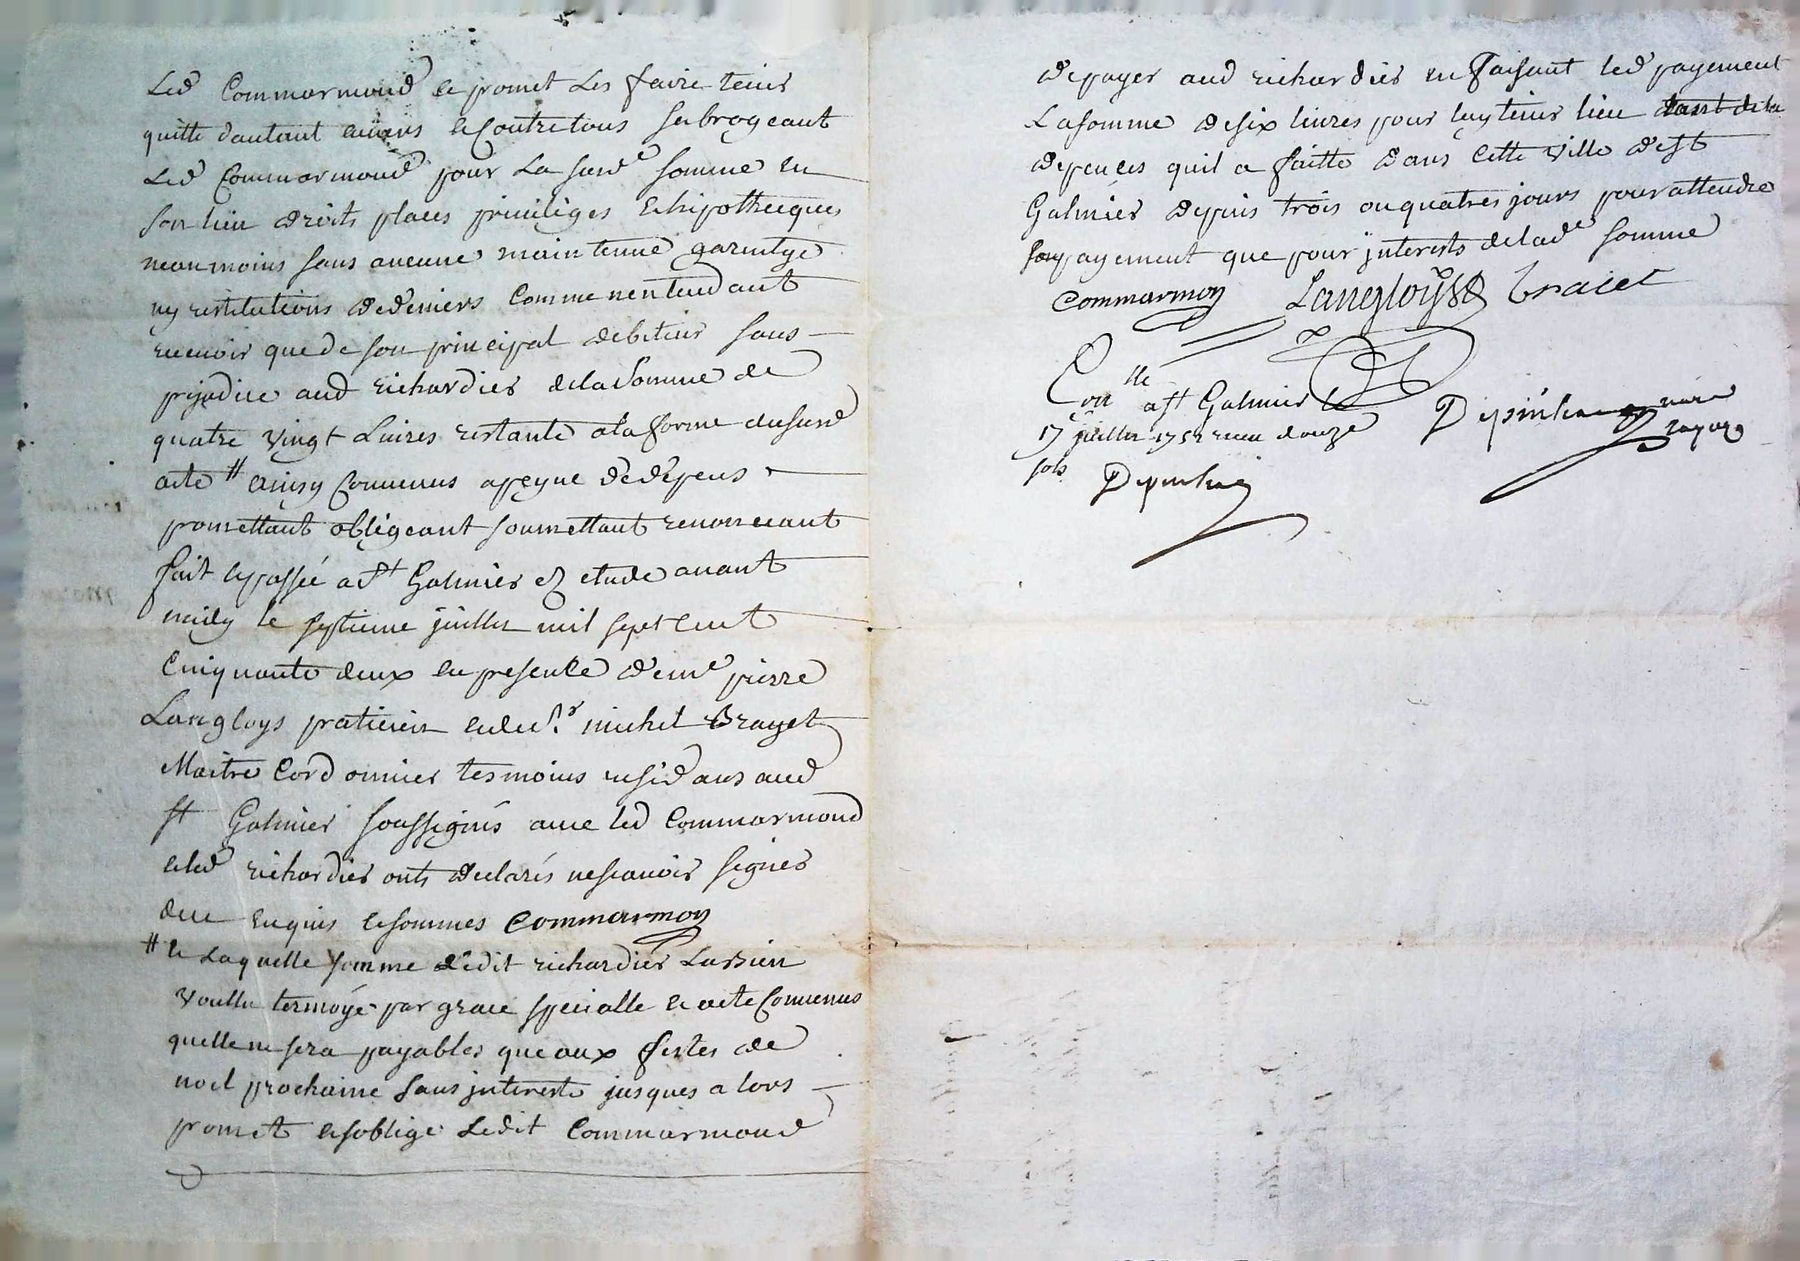 Led Commarmond et promet les faire tenir
quitte dautant envers et contre tous subrogeant
Led Commarmond pour La susd.e somme en
son lieu droits places privileges et hipotheques
neanmoins sans aucune maintenue garentye
ny restitutions de deniers comme nentendant
recevoir que de son principal debiteur sans
prejudice aud richardier de la Somme de
quatre vingt Livres restante a la forme dususd
acte # ainsy Convenus a peyne de depens
promettant obligeant soumettant renonceant
fait et passée a St Galmier ez etude avant
midy le septieme juillet mil sept cent
Cinquante deux en presence de me pierre
Langloys praticien et de Sr michel Brayet
Maitre Cordonnier tesmoins residans aud
St Galmier soussignés avec led Commarmond
et led richardier onts declarés nescavoir signer
de ce enquis et sommes Commarmon
# et Laquelle somme ledit richardier Lassieu
voullu termoyé par grace specialle et acte Convenus
quelle ne sera payables que aux festes de
noel prochaine sans interests jusques a lors
promet et soblige Ledit Commarmond
de payer aud richardier en faisant led payement
La somme de six livres pour luy tenir lieu tant de la
depences quil a faitte dans cette ville de St
Galmier depuis trois ou quatres jours pour attendre
son payement que pour interests de lad.e somme
Commarmon Langloys Braiet
Conlle
a St Galmier le
17 juillet 1752 receu douze
sols